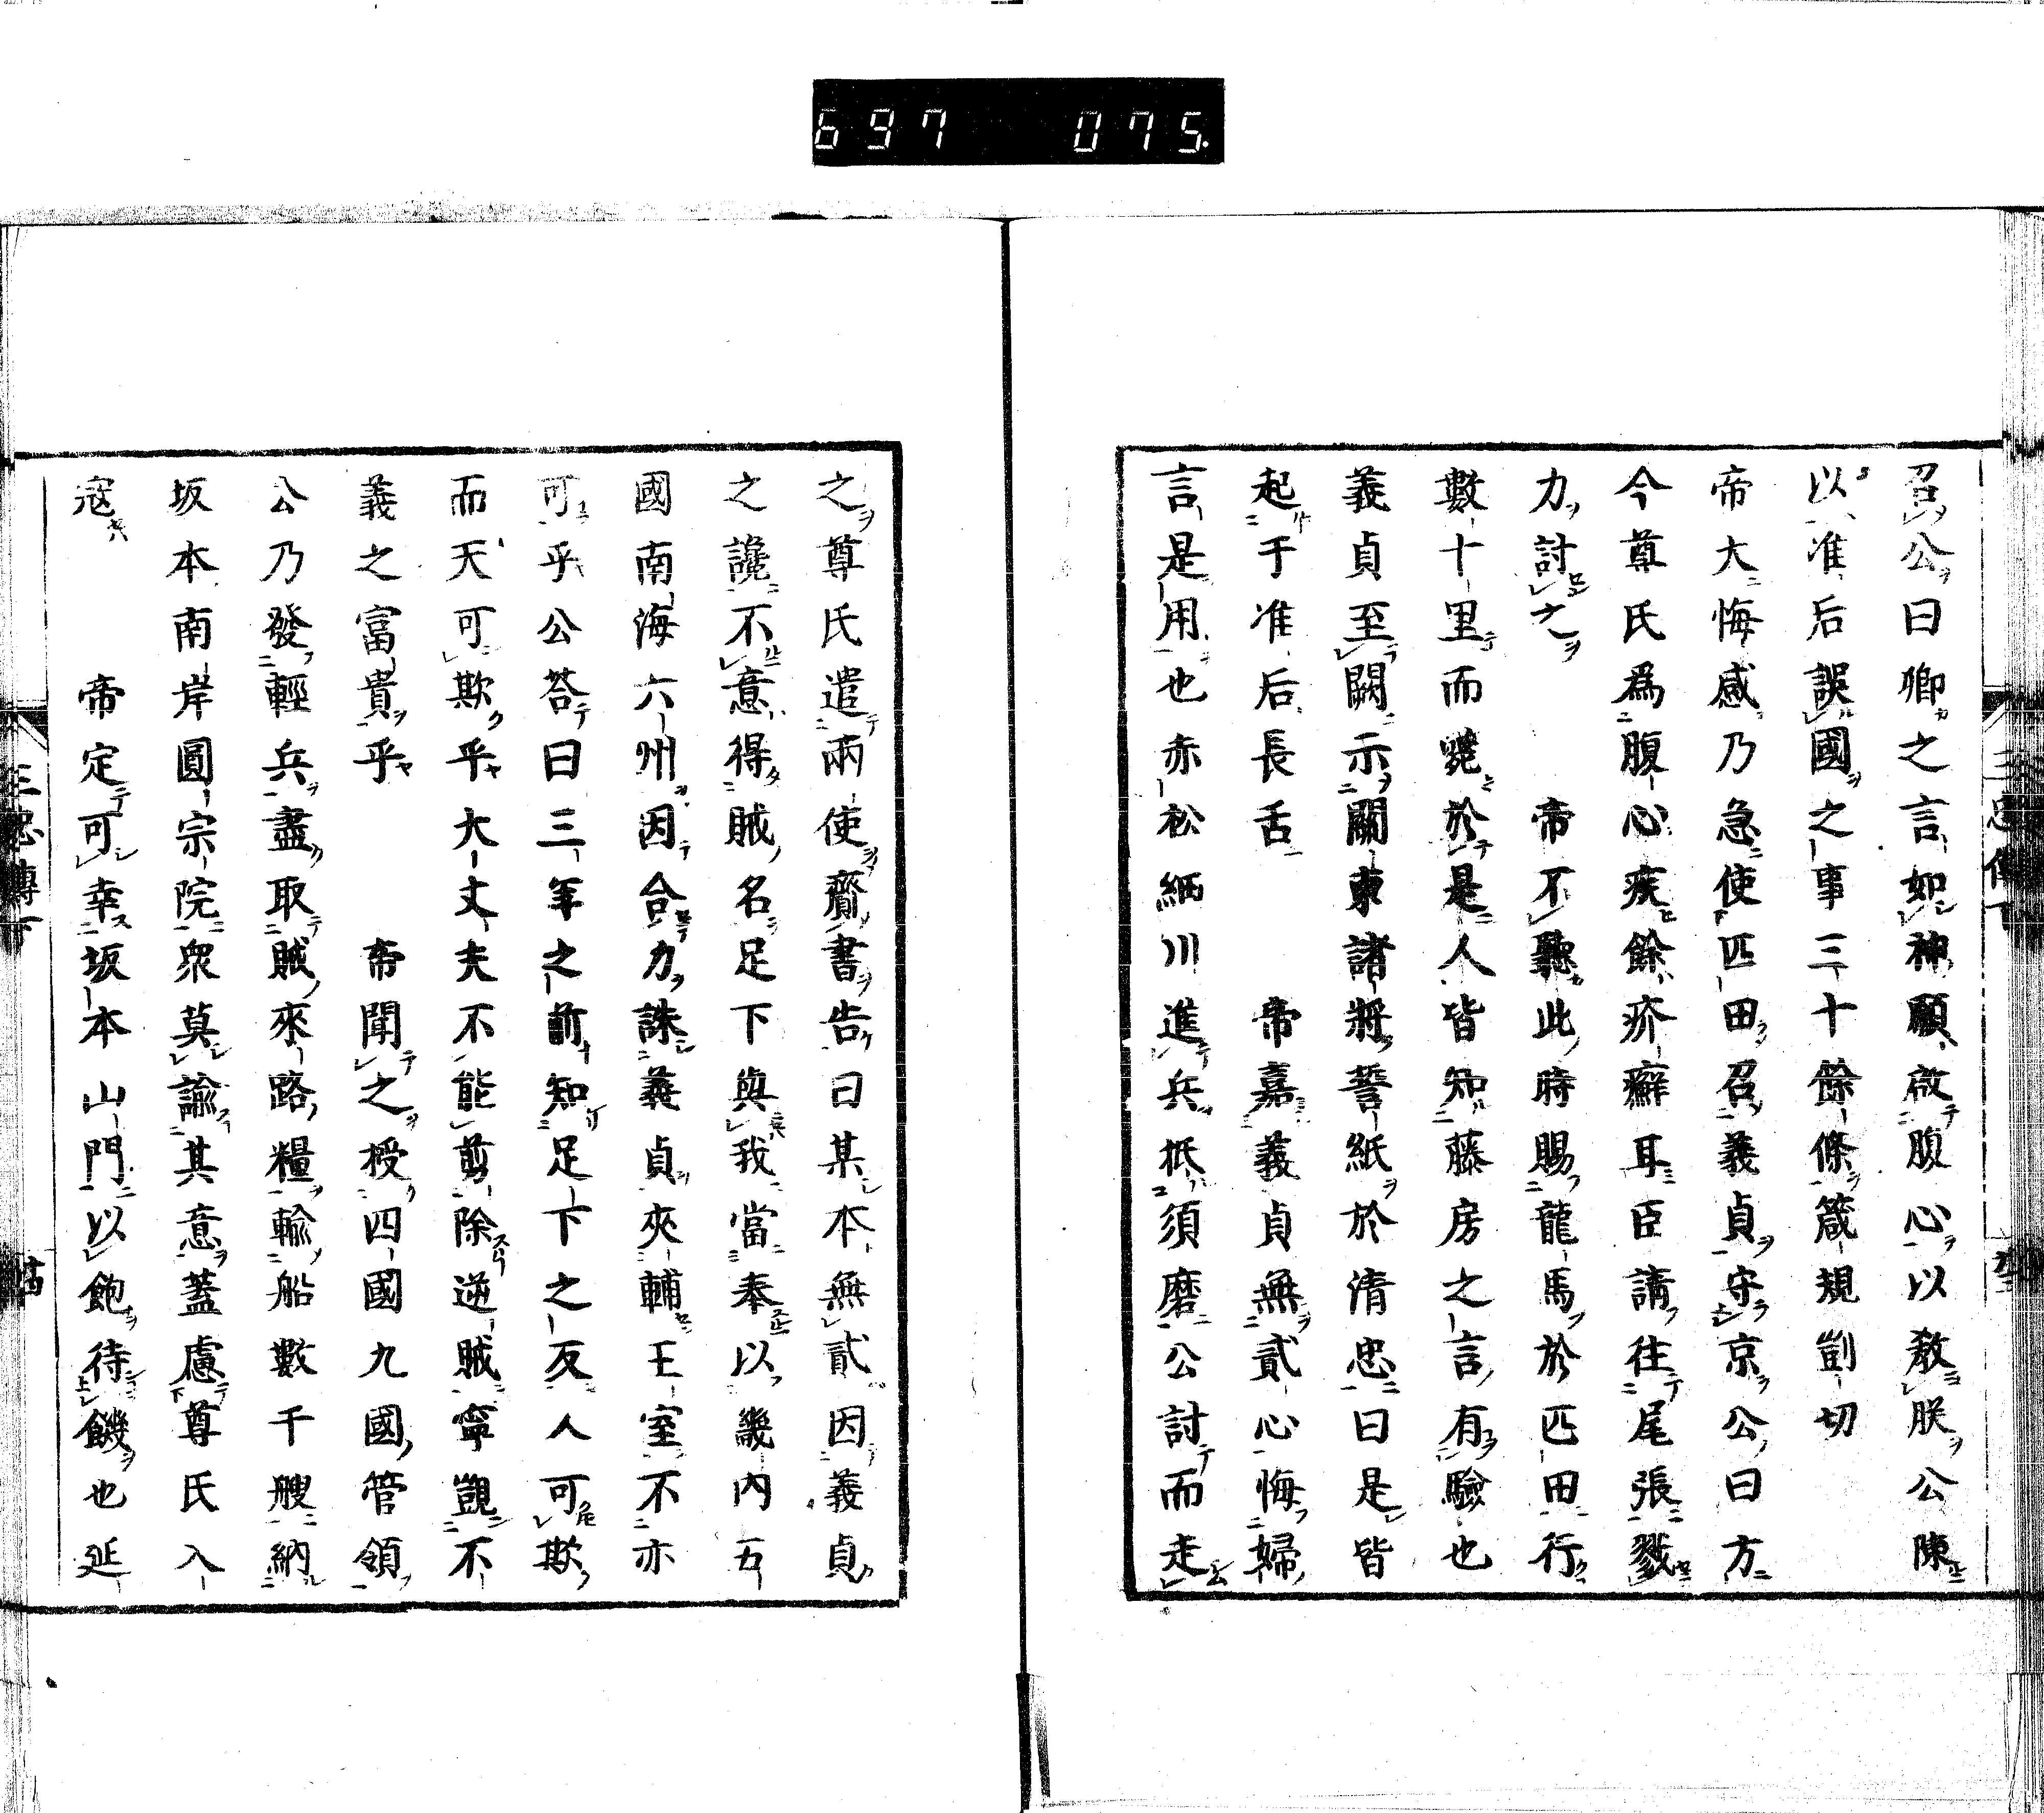 697 075.
召公曰卿之言如神願啟腹心以教朕公陳
以准后誤國之事三十餘條箴規剴切
帝大悔感乃急使匹田召義貞守京公曰方
今尊氏爲腹心疾餘疥癬耳臣請往尾張戮
力討之　帝不聽此時賜龍馬於匹田行
數十里而斃於是人皆知藤房之言有驗也
義貞至闕示關東諸將誓紙於清忠曰是皆
起于准后長舌　帝嘉義貞無貳心悔婦
言是用也赤松緬川進兵抵須磨公討而走
之尊氏遣兩使齎書告曰某本無貳因義貞
之讒不意得賊名足下與我當奉以畿内五
國南海六州因合力誅義貞夾輔王室不亦
可乎公答曰三年之前知足下之反人可欺
而天可欺乎大丈夫不能剪除逆賊寧覬不
義之富貴乎　帝聞之授四國九國管領
公乃發輕兵盡取賊來路糧輸船數千艘納
坂本南岸圓宗院衆莫諭其意蓋慮尊氏入
寇　帝定可幸坂本山門以飽待饑也延
三忠傳下